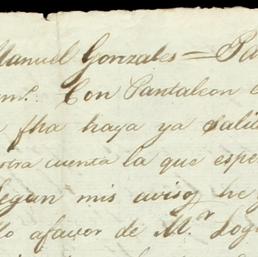 Manuel Gonzales = Pa
Con Pantaleon
fha haya ya salid
cuenta la que espe
Segun mis avisos he
afavor de M.r Log